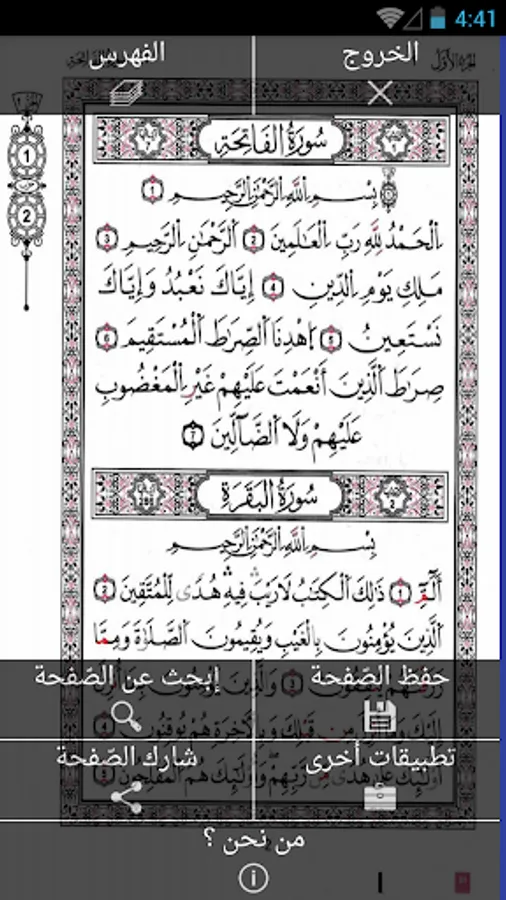 4:41
الخروج
الفهرس
1
2
سُورَةُ الفَاتِحَةِ
بِسْمِ اللَّهِ الرَّحْمَٰنِ الرَّحِيمِ ١
اِلْحَمْدُ لِلَّهِ رَبِّ اِلْعَالَمِينَ ٢ اَلرَّحْمَٰنِ اِلرَّحِيمِ ٣
مَلِكِ يَوْمِ اِلدِّينِ ٤ إِيَّاكَ نَعْبُدُ وَإِيَّاكَ
نَسْتَعِينُ ٥ اِهْدِنَا اَلصِّرَاطَ اَلْمُسْتَقِيمَ ٦
صِرَاطَ اَلَّذِينَ أَنْعَمْتَ عَلَيْهِمْ غَيْرِ اِلْمَغْضُوبِ
عَلَيْهِمْ وَلَا اَلضَّآلِّينَ ٧
سُورَةُ البَقَرَةِ
بِسْمِ اللَّهِ الرَّحْمَٰنِ الرَّحِيمِ
أَلَمِّ ١ ذَٰلِكَ اَلْكِتَٰبُ لَا رَيْبَ فِيهِ هُدًى لِّلْمُتَّقِينَ ٢
اَلَّذِينَ يُؤْمِنُونَ بِالْغَيْبِ وَيُقِيمُونَ اَلصَّلَوٰةَ وَمِمَّا
حفظ الصّفحة
إبحث عن الصّفحة
تطبيقات أخرى
شارك الصّفحة
من نحن ؟